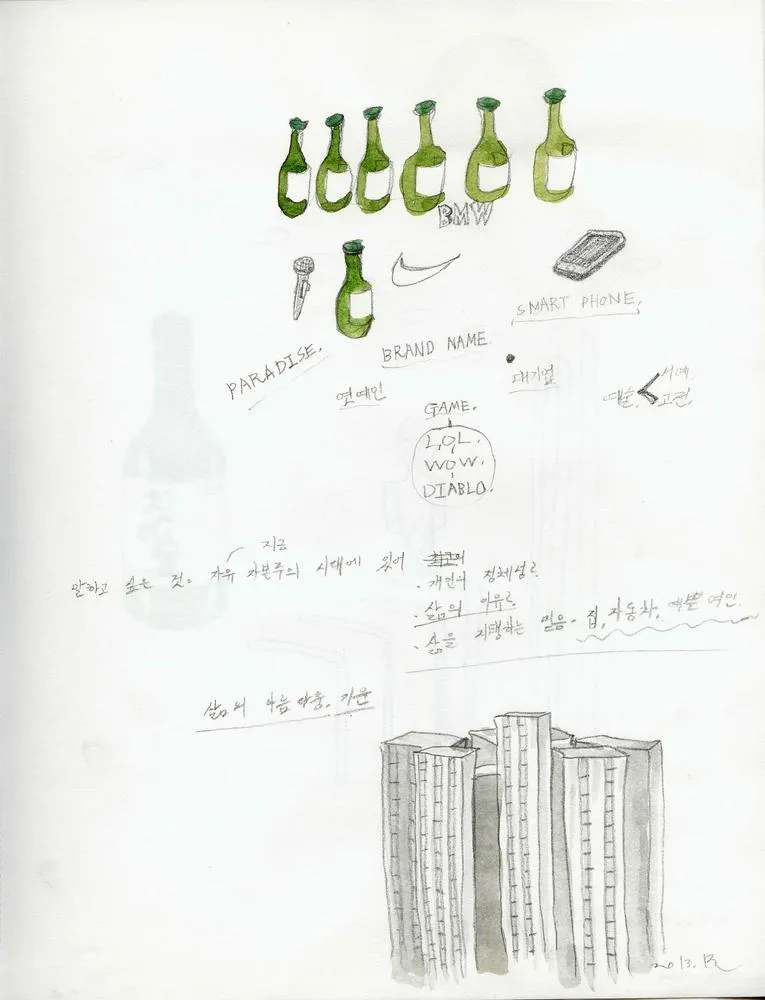 BMW
SMART PHONE.
BRAND NAME
PARADISE.
대기업
연예인
예술 < 서예
고전.
GAME.
LOL.
WOW.
DIABLO.
지금
말하고 싶은 것은 자유 자본주의 시대에 있어
. 개인의 정체성?
. 삶의 이유?
. 삶을 지탱하는 믿음 - 집, 자동차, 예쁜 여인.
삶의 아름다움.
2013.